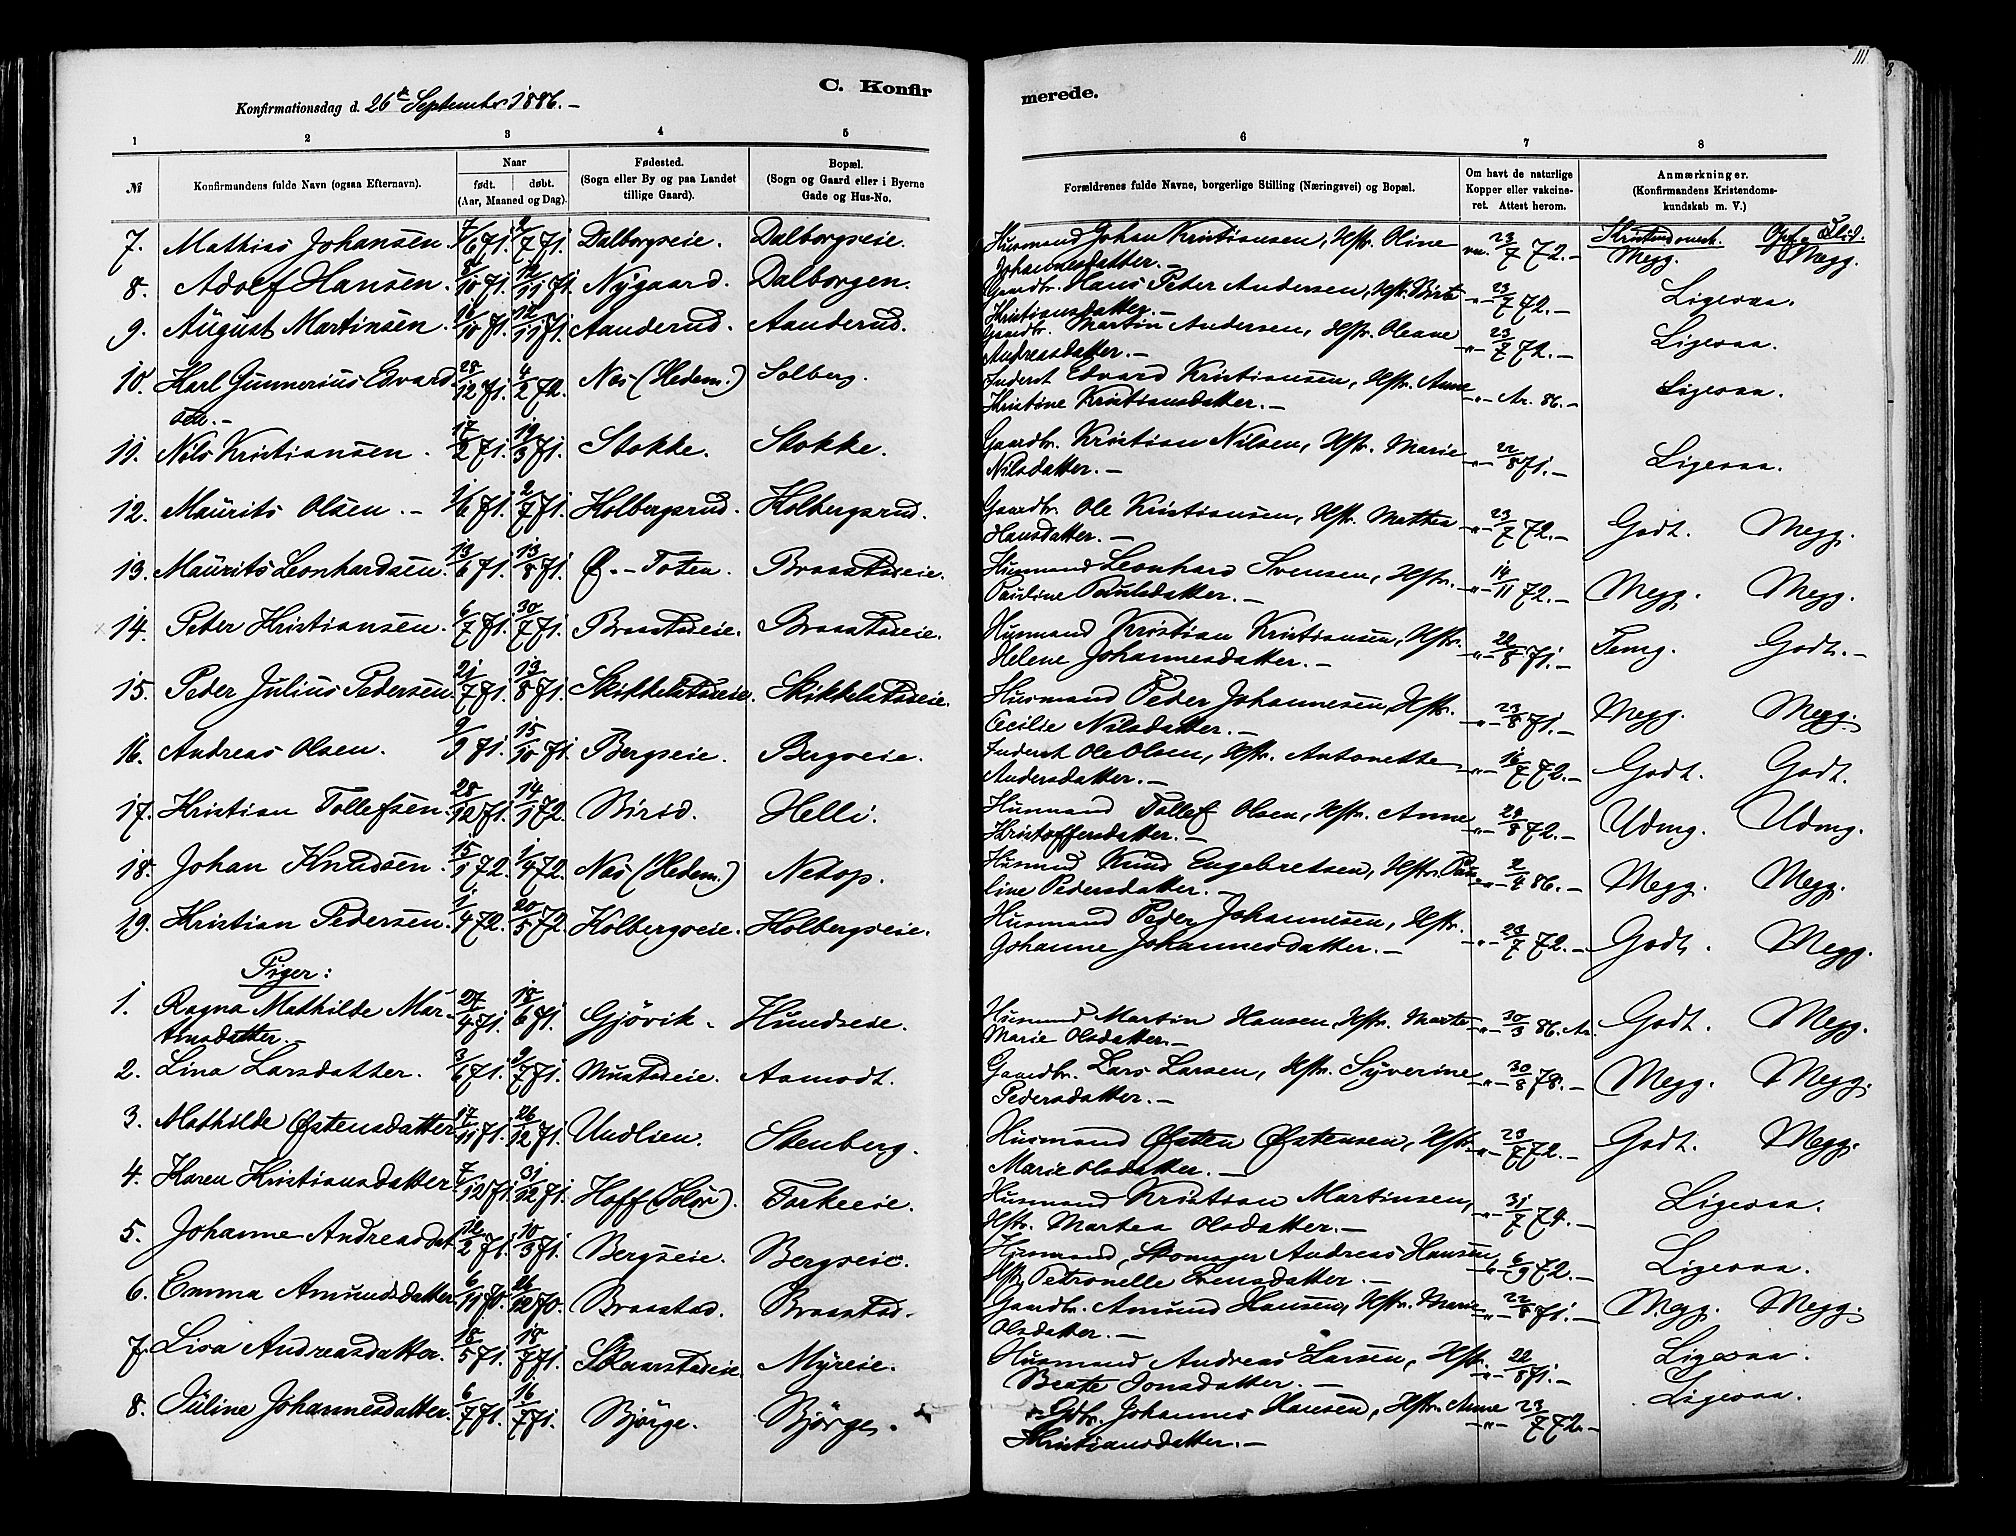 111
8
C. Konfir
merede.
Konfirmationsdag d. 26de September 1886. –
1 2 3 4 5 6 7 8
№ Konfirmandens fulde Navn (ogsaa Efternavn). Naar født. døbt. (Aar, Maaned og Dag). Fødested. (Sogn eller By og paa Landet tillige Gaard). Bopæl. (Sogn og Gaard eller i Byerne Gade og Hus-No. Forældrenes fulde Navne, borgerlige Stilling (Næringsvei) og Bopæl. Om havt de naturlige Kopper eller vakcineret. Attest herom. Anmærkninger. (Konfirmandens Kristendomskundskab m. V.)
Kristendomsk. Opf. o Flid.
7. Mathias Johansen. 7/6 71. 2/7 71. Dalborgseie. Dalborgseie. Husmand Johan Kristiansen, Hstr. Oline va. 23/7 72. – Megg. Megg.
Johannesdatter. –
8. Adolf Hansen. 8/10 71. 12/11 71. Nygaard. Dalborgen. Gaardbr. Hans Peter Andersen, Hstr. Birte -"- 23/7 72. – Ligesaa.
Kristiansdatter. –
9. August Martinsen. 16/10 71. 12/11 71. Aanderud. Aanderud. Gaardbr. Martin Andersen, Hstr. Oleane -"- 23/7 72. – Ligesaa.
Andreasdatter. –
10. Karl Gunnerius Edvard 28/12 71. 4/2 72. Nes (Hedem.) Solberg. Inderst Edvard Kristiansen, Hstr. Anne -"- Ar. 86. – Ligesaa.
sen. – Kristine Kristiansdatter. –
11. Nils Kristiansen. 17/2 71. 19/3 71. Stokke. Stokke. Gaardbr. Kristian Nilsen, Hstr. Marie -"- 22/8 71. – Ligesaa.
Nilsdatter. –
12. Maurits Olsen. – 1/6 71. 2/7 71. Kolbergsrud. Kolbergsrud. Gaardbr. Ole Kristiansen, Hstr. Mathea -"- 23/7 72. – Godt. Megg.
Hansdatter. –
13. Maurits Leonhardsen. 13/6 71. 13/8 71. Ø. – Toten. Braastadeie. Husmand Leonhard Svensen, Hstr. -"- 14/11 72. – Megg. Megg.
Pauline Paulsdatter. –
14. Peter Kristiansen. 6/7 71. 30/7 71. Braastadeie. Braastadeie. Husmand Kristian Kristiansen, Hstr. -"- 22/8 71. – Temg. Godt. –
Helene Johannesdatter. –
15. Peder Julius Pedersen. 21/7 71. 13/8 71. Skikkelstadeie. Skikkelstadeie. Husmand Peder Johannesen, Hstr. -"- 23/8 71. – Megg. Megg.
Cecilie Nilsdatter. –
16. Andreas Olsen. 9/9 71. 15/10 71. Bergseie. Bergseie. Inderst Ole Olsen, Hstr. Antonette -"- 16/7 72. – Godt. Godt.
Andersdatter. –
17. Kristian Tollefsen. 28/12 71. 14/1 72. Birid. Helli. Husmand Tollef Olsen, Hstr. Anne -"- 28/8 72. – Udmg. Udmg.
Kristoffersdatter. –
18. Johan Knudsen. 15/1 72. 1/4 72. Nes (Hedem.) Netop. Husmd Knud Engebretsen, Hstr. Pau- -"- 2/4 86. – Megg. Megg.
line Pedersdatter. –
19. Kristian Pedersen. 1/4 72. 20/5 72. Kolbergseie. Kolbergseie. Husmand Peder Johannesen, Hstr. -"- 23/7 72. – Godt. Megg.
Johanne Johannesdatter. –
Piger:
1. Ragna Mathilde Mar- 27/4 71. 18/6 71. Gjövik. Hundseie. Husmand Martin Hansen, Hstr. Marte -"- 30/3 86. Ar. Godt. Megg.
tinsdatter. – Marie Olsdatter. –
2. Lina Larsdatter. 3/6 71. 9/7 71. Mustadeie. Aamodt. Gaardbr. Lars Larsen, Hstr. Syverine -"- 30/8 78. – Megg. Megg.
Pedersdatter. –
3. Mathilde Østensdatter 17/11 71. 26/12 71. Undlien. Stenberg. Husmand Østen Østensen, Hstr. -"- 23/7 72. – Godt. Megg.
Marie Olsdatter. –
4. Karen Kristiansdatter 7/12 71. 31/12 71. Hoff (Solør). Torkeeie. Husmand Kristian Martinsen, -"- 31/7 74. – Ligesaa.
Hstr. Martea Olsdatter. –
5. Johanne Andreasdat. 12/2 71. 10/3 71. Bergseie. Bergseie. Husmand, Skomager Andreas Hansen -"- 6/9 72. – Ligesaa.
Hstr. Petronelle Evensdatter. –
6. Emma Amundsdatter 6/11 70. 26/12 70. Braastad. Braastad. Gaardbr. Amund Hansen, Hstr. Marie -"- 22/8 71. – Megg. Megg.
Olsdatter. –
7. Lisa Andreasdatter. 18/5 71. 18/7 71. Skaarstadeie. Myreie. Husmand Andreas Larsen, Hstr. -"- 22/8 71. – Ligesaa.
Beate Jonsdatter. –
8. Juline Johannesdatter. 6/7 71. 16/7 71. Bjørge. Bjørge. Gdbr. Johannes Hansen, Hstr. Anne -"- 23/7 72. – Ligesaa.
Kristiansdatter. –